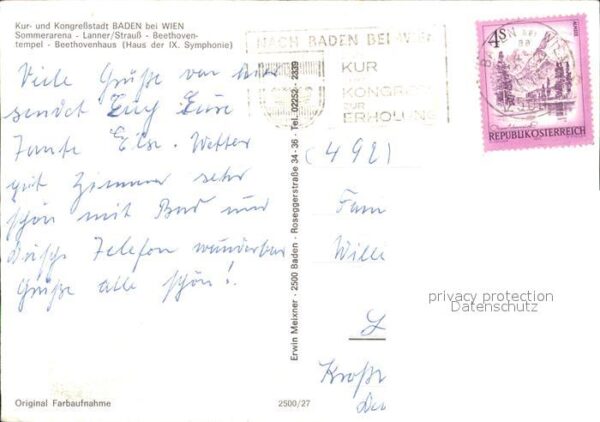 Kur- und Kongreßstadt BADEN bei WIEN
Sommerarena - Lanner/Strauß - Beethoven-
tempel - Beethovenhaus (Haus der IX. Symphonie)
Viele Grüße von hier
sendet Euch Eure
Tante Else. Wetter
gut Zimmer sehr
schön mit Bad und
Dusche Telefon wunderbar
Grüße alle schön!
Original Farbaufnahme
2500/27
Erwin Meixner - 2500 Baden - Roseggerstraße 34-36 - Tel. 02252-2339
NACH BADEN BEI WIEN
KUR
KONGRESS
ZUR
ERHOLUNG
4S
REPUBLIK ÖSTERREICH
(492)
Fam
Willi
privacy protection
Datenschutz